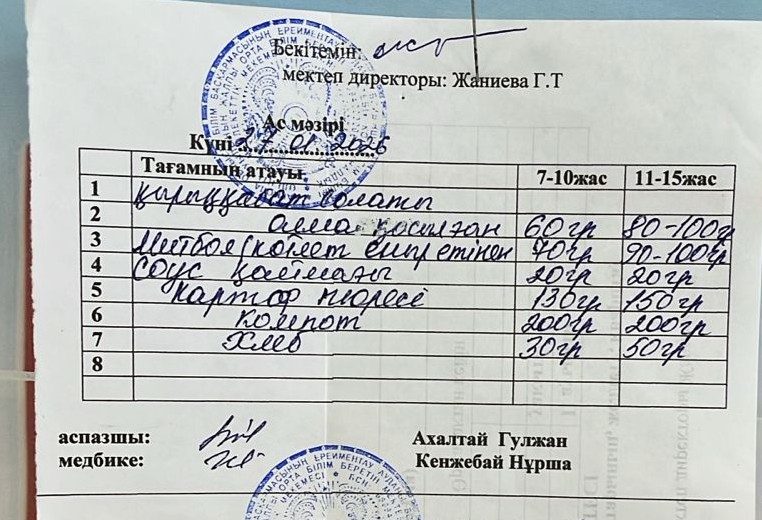 Бекітемін:
мектеп директоры: Жаниева Г.Т
Ас мәзірі
Күні 27.01.2026
Тағамның атауы 7-10жас 11-15жас
1 Қырыққабат салаты
2 алма қосылған 60гр 80-100гр
3 Митбол (котлет сиыр етінен 70гр 90-100гр
4 Соус қаймағы 20гр 20гр
5 Картоф пюресі 130гр 150гр
6 Компот 200гр 200гр
7 Хлеб 30гр 50гр
8
аспазшы: Ахалтай Гулжан
медбике: Кенжебай Нұрша